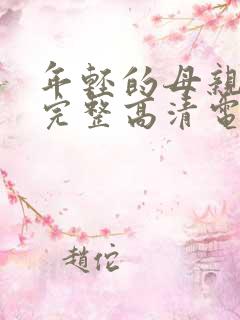 年輕的母親
完整高清電
趙佗